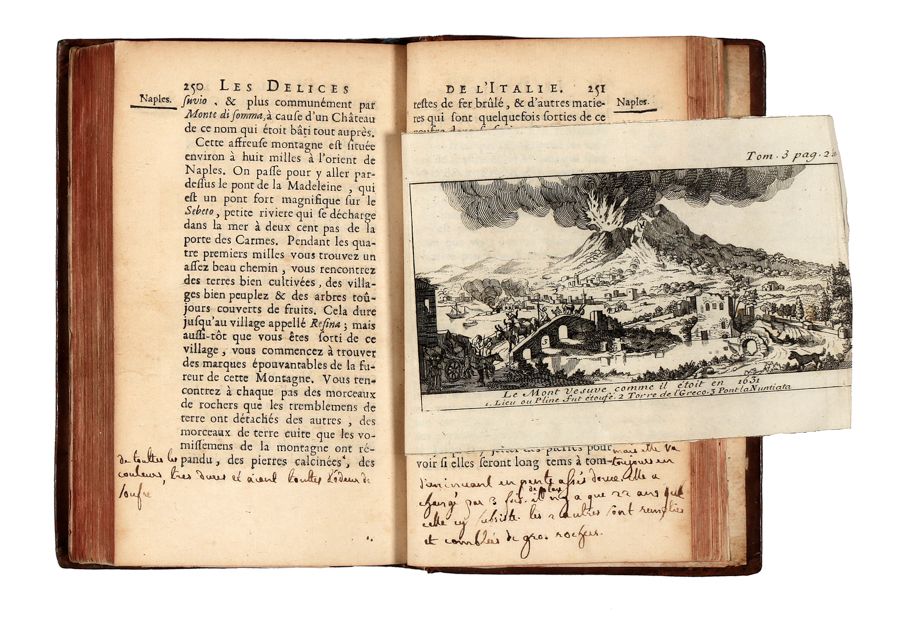 250 LES DELICES
Naples.
suvio. & plus communément par
Monte di somma, à cause d'un Château
de ce nom qui étoit bâti tout auprès.
Cette affreuse montagne est située
environ à huit milles à l'orient de
Naples. On passe pour y aller par-
dessus le pont de la Madeleine, qui
est un pont fort magnifique sur le
Sebeto, petite riviere qui se décharge
dans la mer à deux cent pas de la
porte des Carmes. Pendant les qua-
tre premiers milles vous trouvez un
assez beau chemin, vous rencontrez
des terres bien cultivées, des villa-
ges bien peuplez & des arbres toû-
jours couverts de fruits. Cela dure
jusqu'au village appellé Resina; mais
aussi-tôt que vous êtes sorti de ce
village, vous commencez à trouver
des marques épouvantables de la fu-
reur de cette Montagne. Vous ren-
contrez à chaque pas des morceaux
de rochers que les tremblemens de
terre ont détachés des autres, des
morceaux de terre cuite que les vo-
missemens de la montagne ont ré-
pandu, des pierres calcinées, des
de touttes les
couleurs, tres dures et aiant touttes l'odeur de
soufre
DE L'ITALIE. 251
Naples.
restes de fer brûlé, & d'autres matie-
res qui sont quelquefois sorties de ce
Tom. 3 pag. 2
Le Mont Vesuve comme il étoit en 1631
1. Lieu ou Pline fut étoufé. 2 Torre de l'Greco. 3 Pont la Nuntiata
des pierres pour
voir si elles seront long tems à tom-
mais elle va
toujours en
en pente assés douce. elle a
changé par 3 fois. il n'y a que 22 ans que
celle cy subsiste. les 2 autres sont remplies
et comblées de gros rochers.